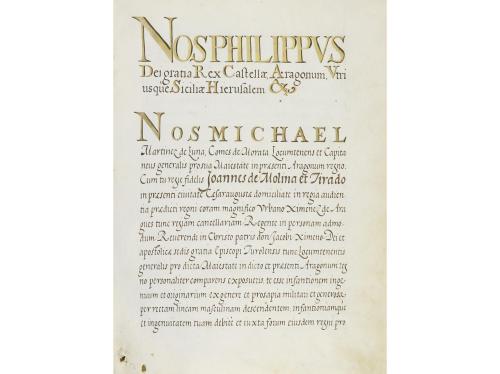 NOS PHILIPPVS
Dei gratia Rex Castellæ, Aragonum, Vtri
usque Siciliæ Hierusalem &c
NOS MICHAEL
Martinez de Luna, Comes de Morata Locumtenens et Capita
neus generalis pro sua Maiestate in presenti Aragonum regno.
Cum tu regie fidelis Joannes de Molina et Tirado
in presenti ciuitate Cesaraugustæ domiciliatᵉ in regia audien
tia predicti regni coram magnifico Vrbano Ximenez de Ara
ques tunc regiam cancellariam Regente in personam admo
dum Reuerendi in Christo patris don Jacobi Ximeno Dei et
apostolicæ sedis gratia Episcopi Turolensis tunc Locumtenentis
generalis pro dicta Maiestate in dicto et presenti Aragonum reg
no personaliter comparens exposuistis, te esse infantionem inge
nuum et originarium ex genere et prosapia militari et generosa,
per rectam lineam masculinam descendentem, infantioniamque
et ingenuitatem tuam debite et iuxta forum eiusdem regni pro